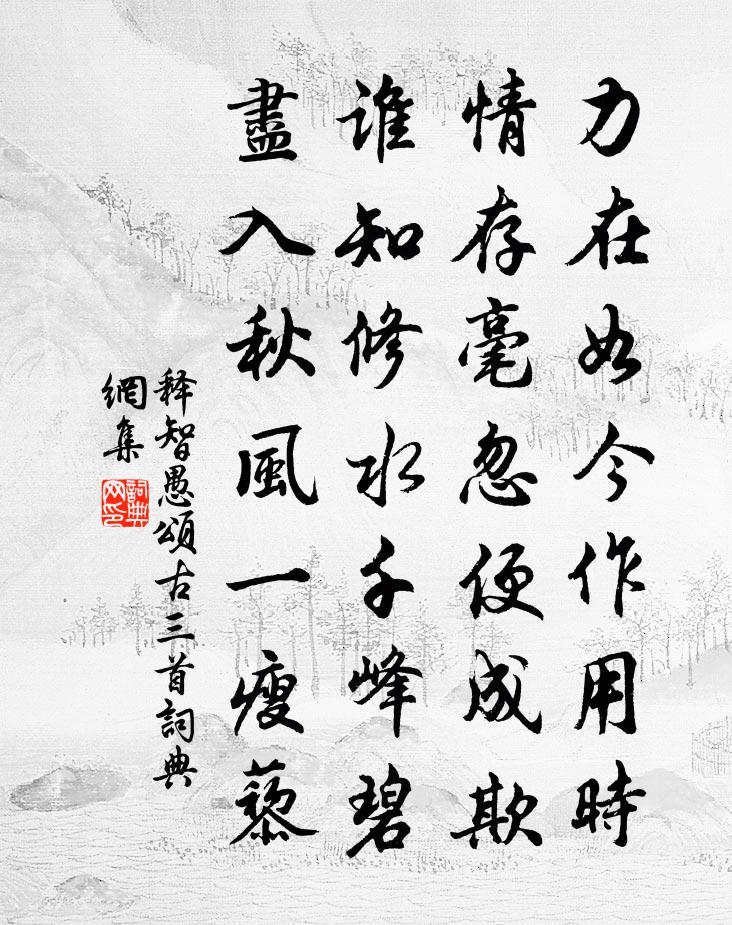 力在如今作用時
情存毫忽便成欺
誰知修水千峰碧
盡入秋風一瘦藜
释智愚頌古三首詞典
網集
詞典
网印